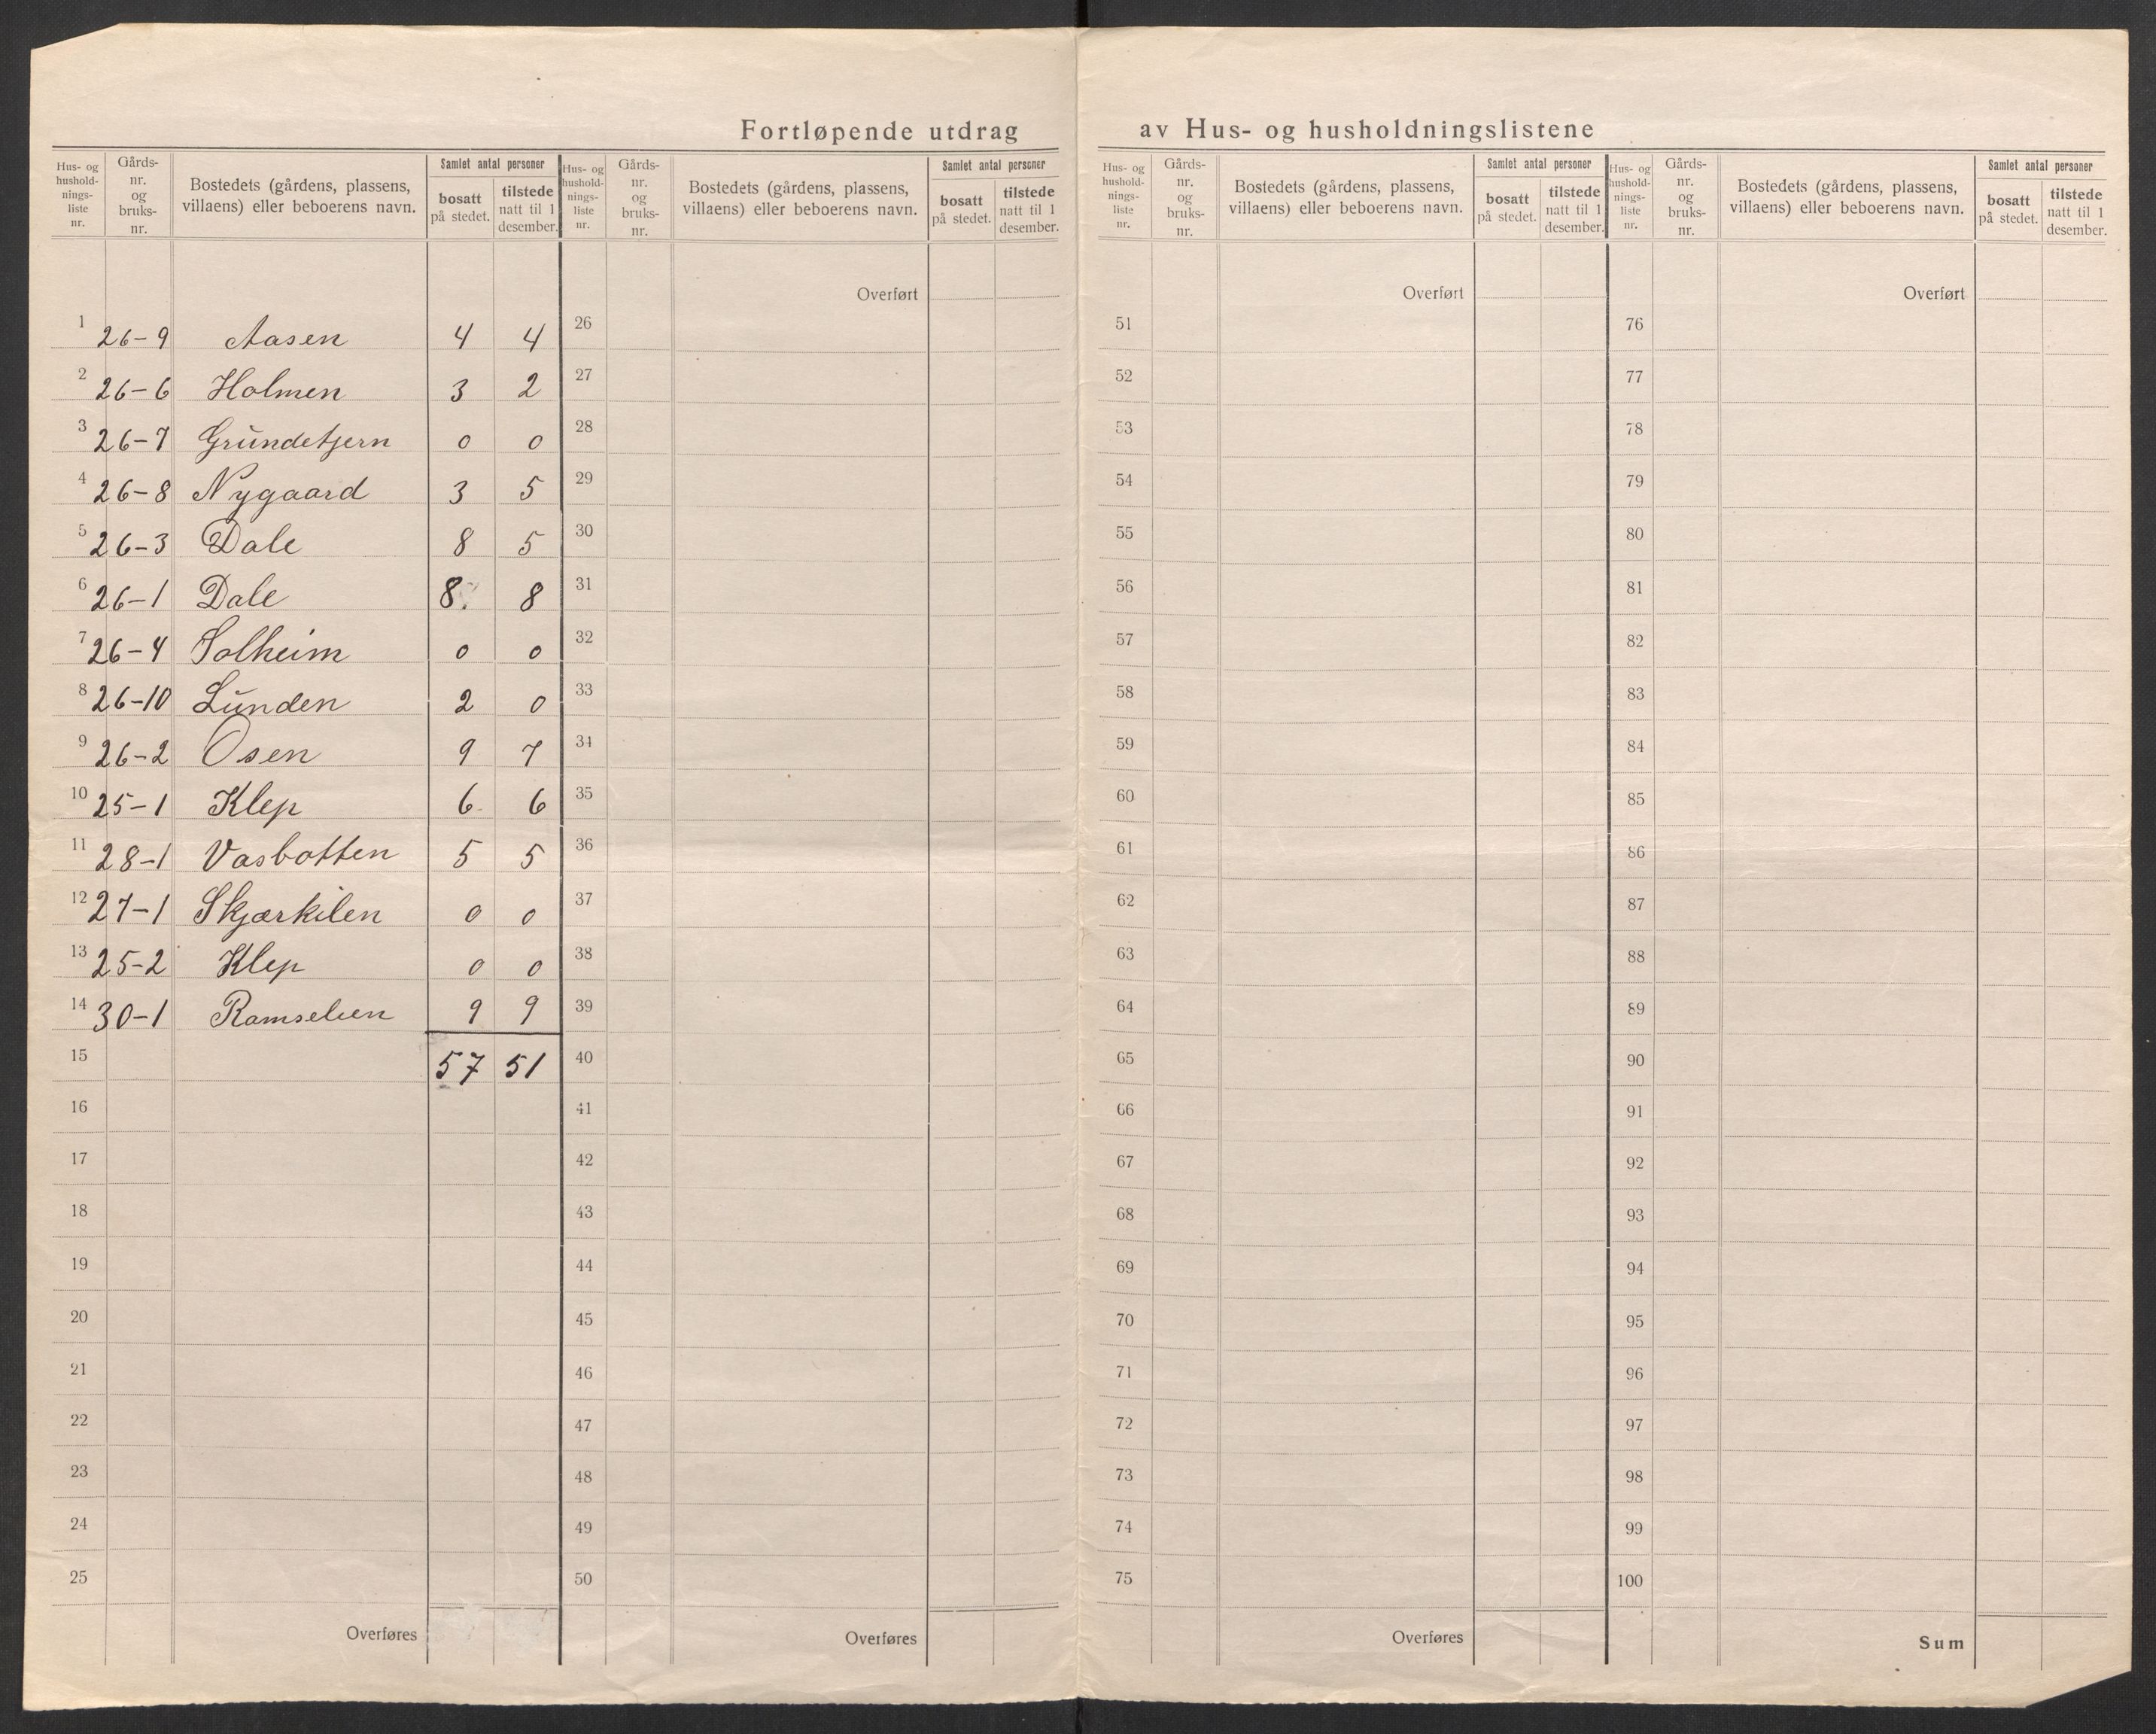 Fortløpende utdrag av Hus- og husholdningslistene
Hus- og hushold-nings-liste nr. | Gårds-nr. og bruks-nr. | Bostedets (gårdens, plassens, villaens) eller beboerens navn. | Samlet antal personer | bosatt på stedet. | tilstede natt til 1 desember.
Hus- og hushold-nings-liste nr. | Gårds-nr. og bruks-nr. | Bostedets (gårdens, plassens, villaens) eller beboerens navn. | Samlet antal personer | bosatt på stedet. | tilstede natt til 1 desember.
Hus- og hushold-nings-liste nr. | Gårds-nr. og bruks-nr. | Bostedets (gårdens, plassens, villaens) eller beboerens navn. | Samlet antal personer | bosatt på stedet. | tilstede natt til 1 desember.
Hus- og hushold-nings-liste nr. | Gårds-nr. og bruks-nr. | Bostedets (gårdens, plassens, villaens) eller beboerens navn. | Samlet antal personer | bosatt på stedet. | tilstede natt til 1 desember.
Overført Overført Overført
1 26-9 Aasen 4 4 26 51 76
2 26-6 Holmen 3 2 27 52 77
3 26-7 Grundetjern 0 0 28 53 78
4 26-8 Nygaard 3 5 29 54 79
5 26-3 Dale 8 5 30 55 80
6 26-1 Dale 8. 8 31 56 81
7 26-4 Solheim 0 0 32 57 82
8 26-10 Lunden 2 0 33 58 83
9 26-2 Osen 9 7 34 59 84
10 25-1 Klep 6 6 35 60 85
11 28-1 Vasbotten 5 5 36 61 86
12 27-1 Skjærkilen 0 0 37 62 87
13 25-2 Klep 0 0 38 63 88
14 30-1 Ramselien 9 9 39 64 89
15 57 51 40 65 90
16 41 66 91
17 42 67 92
18 43 68 93
19 44 69 94
20 45 70 95
21 46 71 96
22 47 72 97
23 48 73 98
24 49 74 99
25 50 75 100
Overføres Overføres Overføres Sum